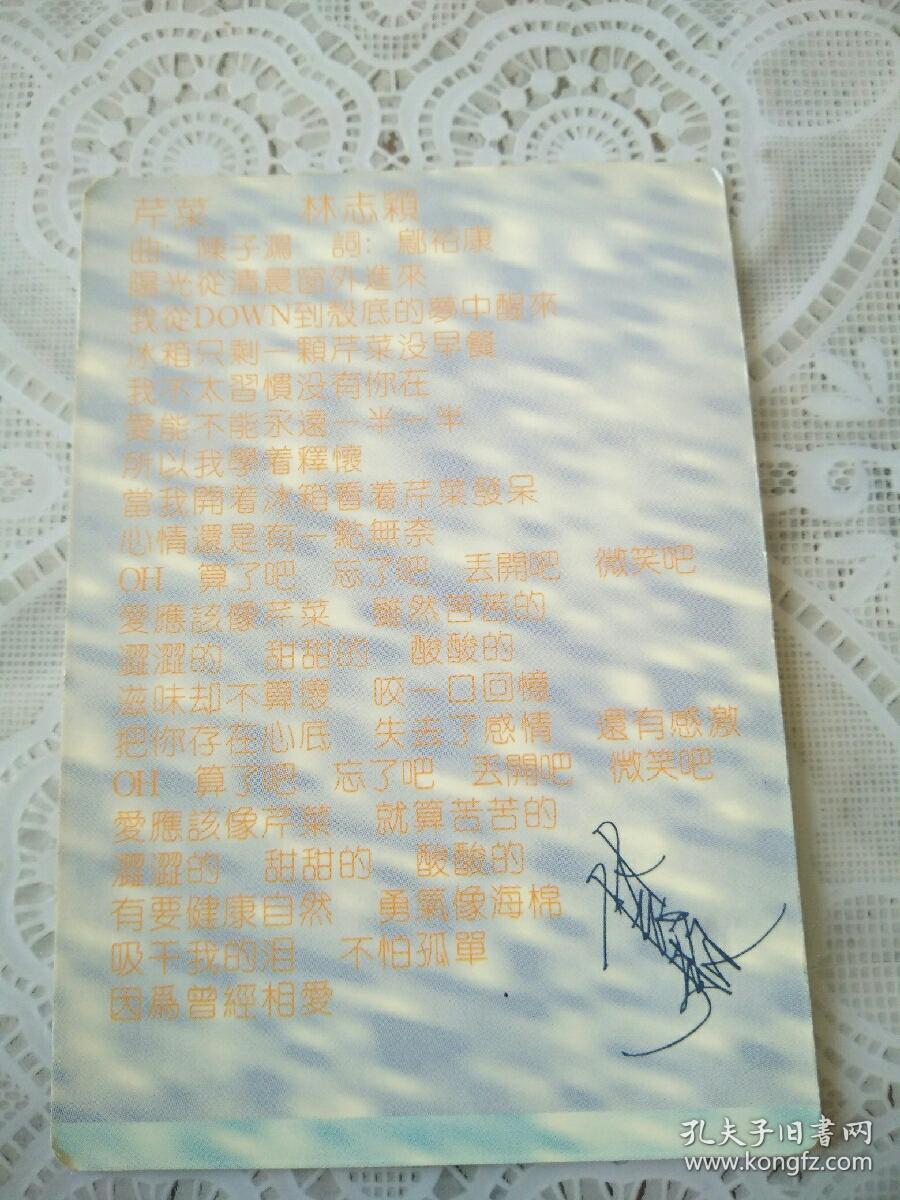 芹菜 林志穎
曲：陳子鴻 詞：鄔裕康
陽光從清晨窗外進來
我從DOWN到殼底的夢中醒來
冰箱只剩一顆芹菜没早餐
我不太習慣没有你在
愛能不能永遠一半一半
所以我學着釋懷
當我開着冰箱看着芹菜發呆
心情還是有一點無奈
OH 算了吧 忘了吧 丢開吧 微笑吧
愛應該像芹菜 雖然苦苦的
澀澀的 甜甜的 酸酸的
滋味却不算壞 咬一口回憶
把你存在心底 失去了感情 還有感激
OH 算了吧 忘了吧 丢開吧 微笑吧
愛應該像芹菜 就算苦苦的
澀澀的 甜甜的 酸酸的
有要健康自然 勇氣像海棉
吸干我的泪 不怕孤單
因爲曾經相愛
孔夫子旧書网
www.kongfz.com